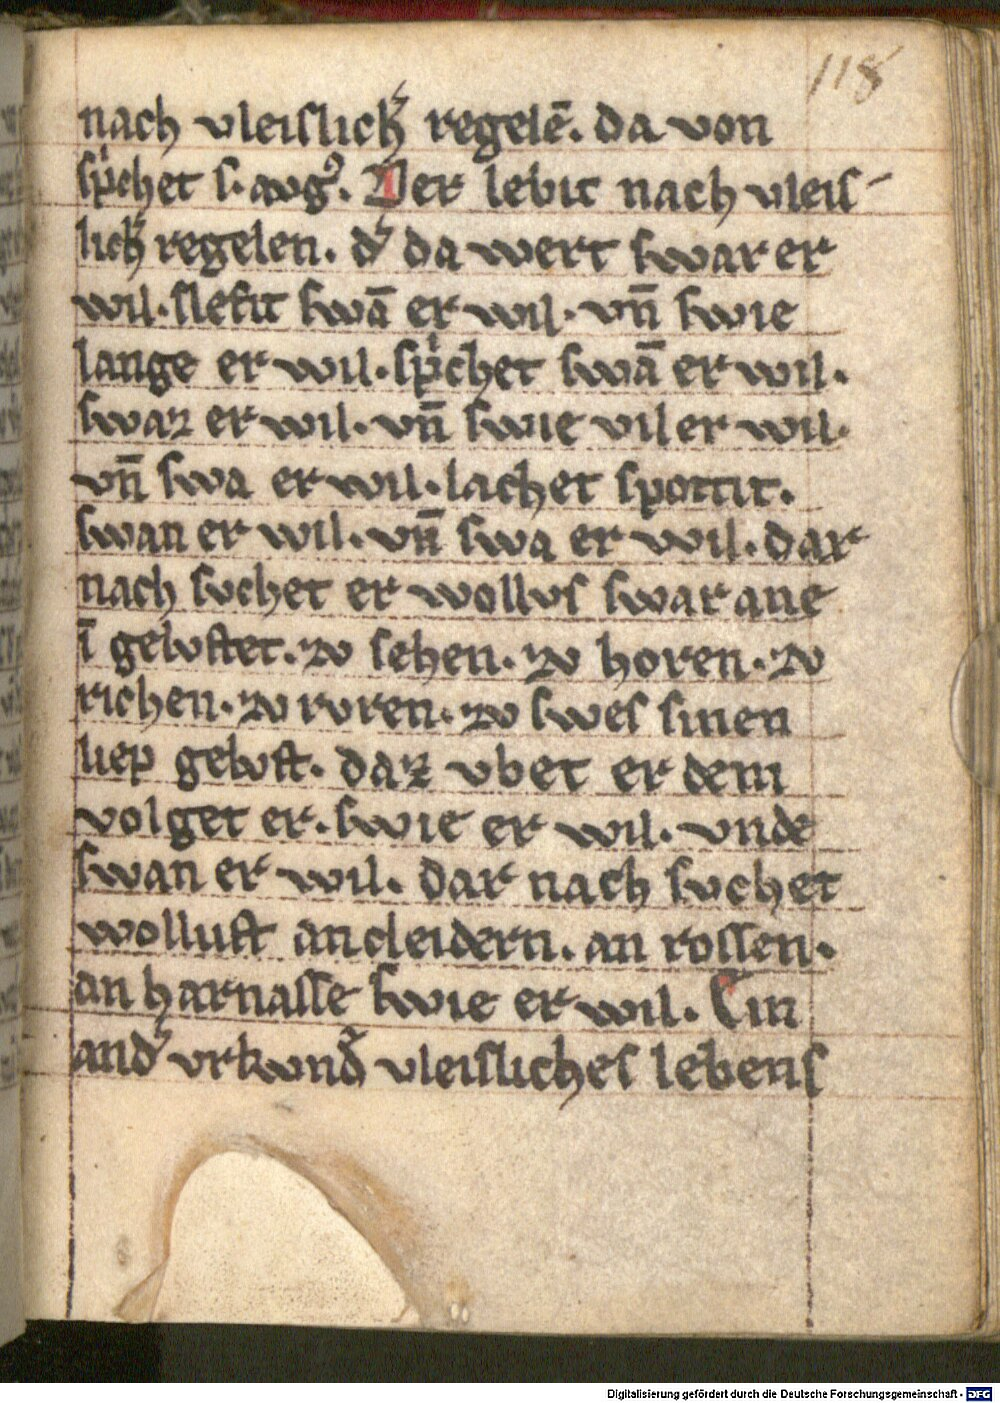 118
nach vleiſlich̾ regelē. da von
ſp̍chet ſ. avgꝰ. Der lebit nach vleiſ-
lich̾ regelen. d̾ da wert ſwar er
wil. ſlefit ſwā er wil. vn̄ ſwie
lange er wil. ſp̍chet ſwā er wil.
ſwaz er wil. vn̄ ſwie vil er wil.
vn̄ ſwa er wil. lachet ſpottit.
ſwan er wil. vn̄ ſwa er wil. dar
nach ſvchet er wollvſ ſwar ane
ī gelvſtet. zv ſehen. zv horen. zv
richen. zv rvren. zv ſweſ ſinen
liep gelvſt. daz vbet er dem
volget er. ſwie er wil. vnde
ſwan er wil. dar nach ſvchet
wolluſt an cleidern. an roſſen.
an harnaſſe ſwie er wil. Ein
and̾ vrkvnd̾ vleiſlicheſ lebenſ
Digitalisierung gefördert durch die Deutsche Forschungsgemeinschaft - DFG